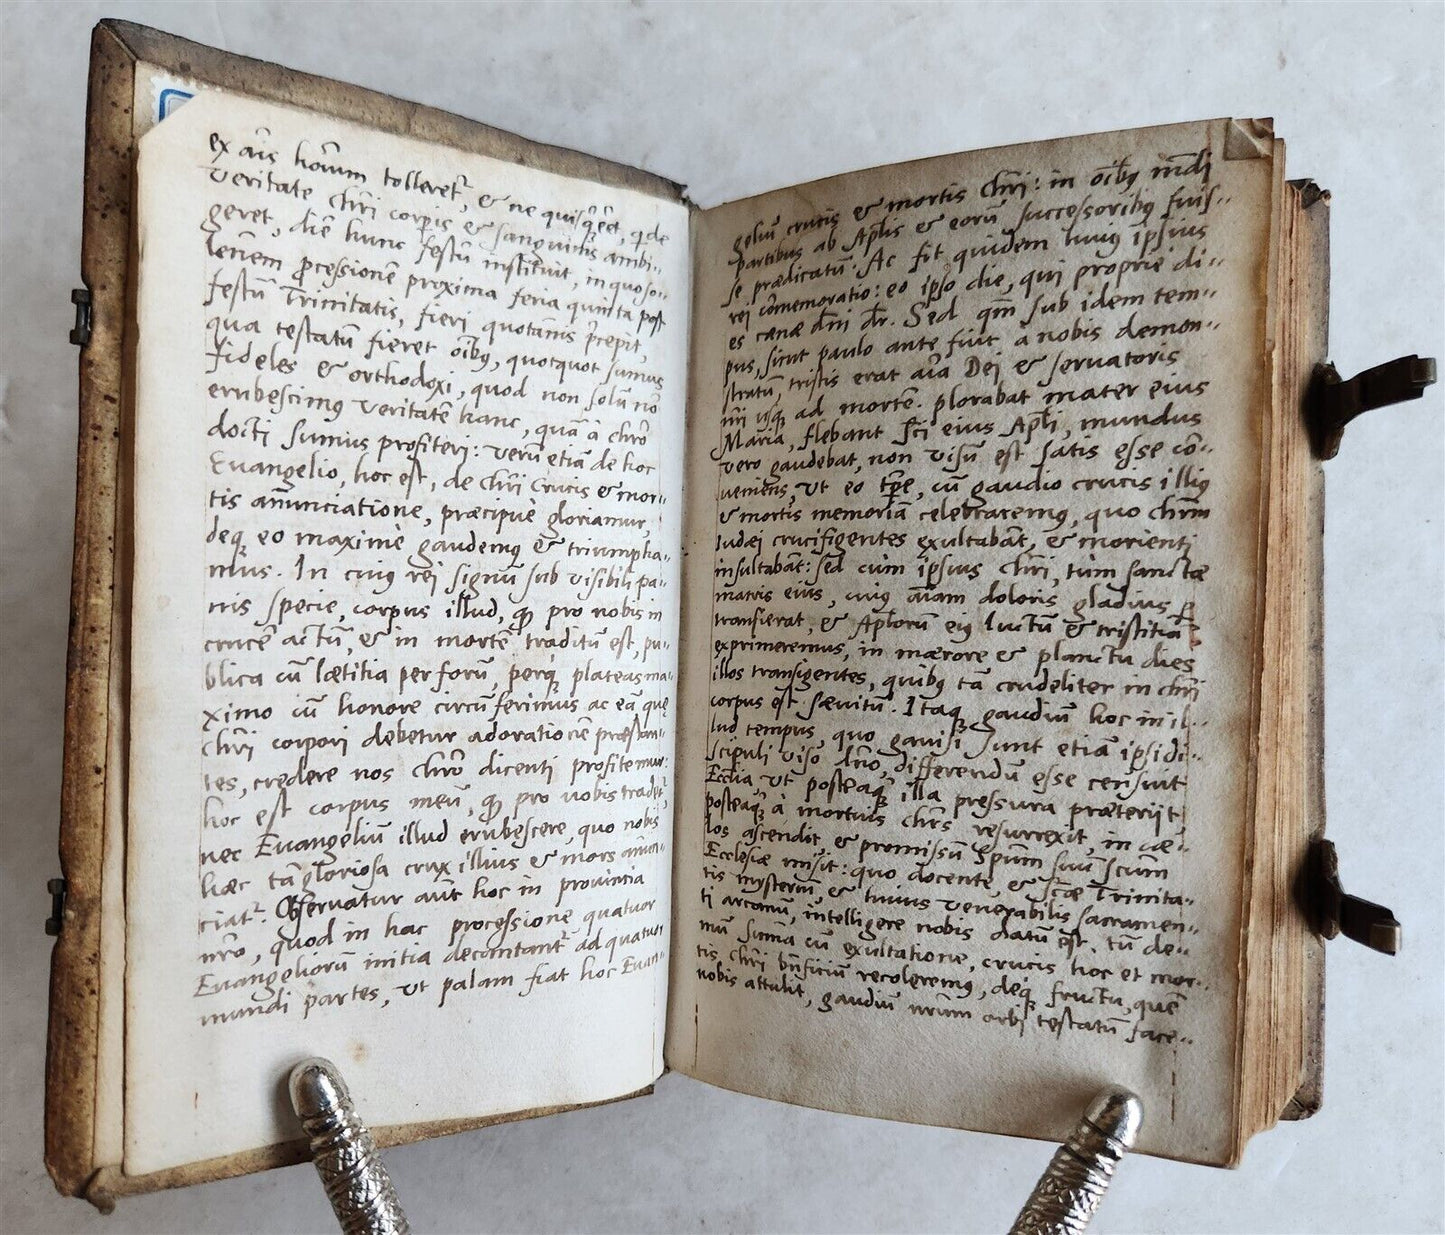 ex aĩs homĩm tolleret², & ne quisq̃ eẽt, qui de
veritate chr̃i corpĩs & sanguinis ambi-
geret, diẽ hunc festũ instituit, in quo so-
lẽnem p̃cessionẽ proxima feria quinta post
festũ Trinitatis, fieri quotannis p̃cepit,
qua testatũ fieret oĩbꝫ, quotquot sumus
fideles & orthodoxi, quod non solũ nõ
erubescimꝫ veritatẽ hanc, quã à chr̃o
docti sumus profiteri: verũ etiã de hoc
Euangelio, hoc est, de chr̃i crucis & mor-
tis annunciatione, præcipuè gloriamur,
deqꝫ eo maximè gaudemꝫ & triumpha-
mus. In cuiꝫ rei signũ sub visibili pa-
nis specie, corpus illud, qđ pro nobis in
crucẽ actũ, & in mortẽ traditũ est, pu-
blica cũ lætitia per forũ, perqꝫ plateas ma-
ximo cũ honore circũferimus ac eã quę
chr̃i corpori debetur adorationẽ præstan-
tes, credere nos chr̃o dicenti profitemur:
hoc est corpus meũ, qđ pro vobis tradet²,
nec Euangeliũ illud erubescere, quo nobis
hæc tã gloriosa crux illius & mors annun-
ciat². Observatur aũt hoc in provincia
nr̃a, quod in hac processione quatuor
Euangeliorũ initia decantant² ad quatuor
mundi partes, vt palam fiat hoc Euan-
geliũ crucis & mortis chr̃i: in oĩbꝫ mũdi
partibus ab Ap̃lis & eorũ successoribꝫ fuis-
se prædicatũ. Ac fit quidem huiꝫ ipsius
rei cõmemoratio: eo ipso die, qui propriè di-
es cænæ dñi dr̃. Sed qm̃ sub idem tem-
pus, sicut paulo ante fuit à nobis demon-
stratũ, tristis erat aĩa Dei & servatoris
nr̃i vsqꝫ ad mortẽ. plorabat mater eius
Maria, flebant Sc̃i eius Ap̃li, mundus
vero gaudebat, non visũ est satis esse cõ-
ueniens, vt eo tp̃e, cũ gaudio crucis illiꝫ
& mortis memoriã celebraremꝫ, quo chr̃m
Iudæi crucifigentes exultabãt, & morienti
insultabãt: sed cùm ipsius chr̃i, tùm sanctæ
matris eius, cuiꝫ aĩam doloris gladius p̃
transierat, & Ap̃lorũ eiꝫ luctũ & tristitiã
exprimeremus, in mærore & planctu dies
illos transigentes, quibꝫ tã crudeliter in chr̃i
corpus est sævitũ. Itaqꝫ gaudiũ hoc in il-
lud tempus, quo gavisi sunt etiã ipsi di-
scipuli viso dño, differendũ esse censuit
Eccl̃ia, vt posteaqꝫ illa pressura præteriit
posteaqꝫ à mortuis chr̃s resurrexit, in cæ-
los ascendit, & promissũ Spũm suũ scũm
Ecclesiæ misit: quo docente, & scæ Trinita-
tis mysteriũ & huius venerabilis sacramen-
ti arcanũ, intelligere nobis datũ est, tũ de-
mũ sum̃a cũ exultatione, crucis hoc et mor-
tis chr̃i bñficiũ recoleremꝫ, deqꝫ fructu, quẽ
nobis attulit, gaudiũ nr̃um orbi testatũ face-